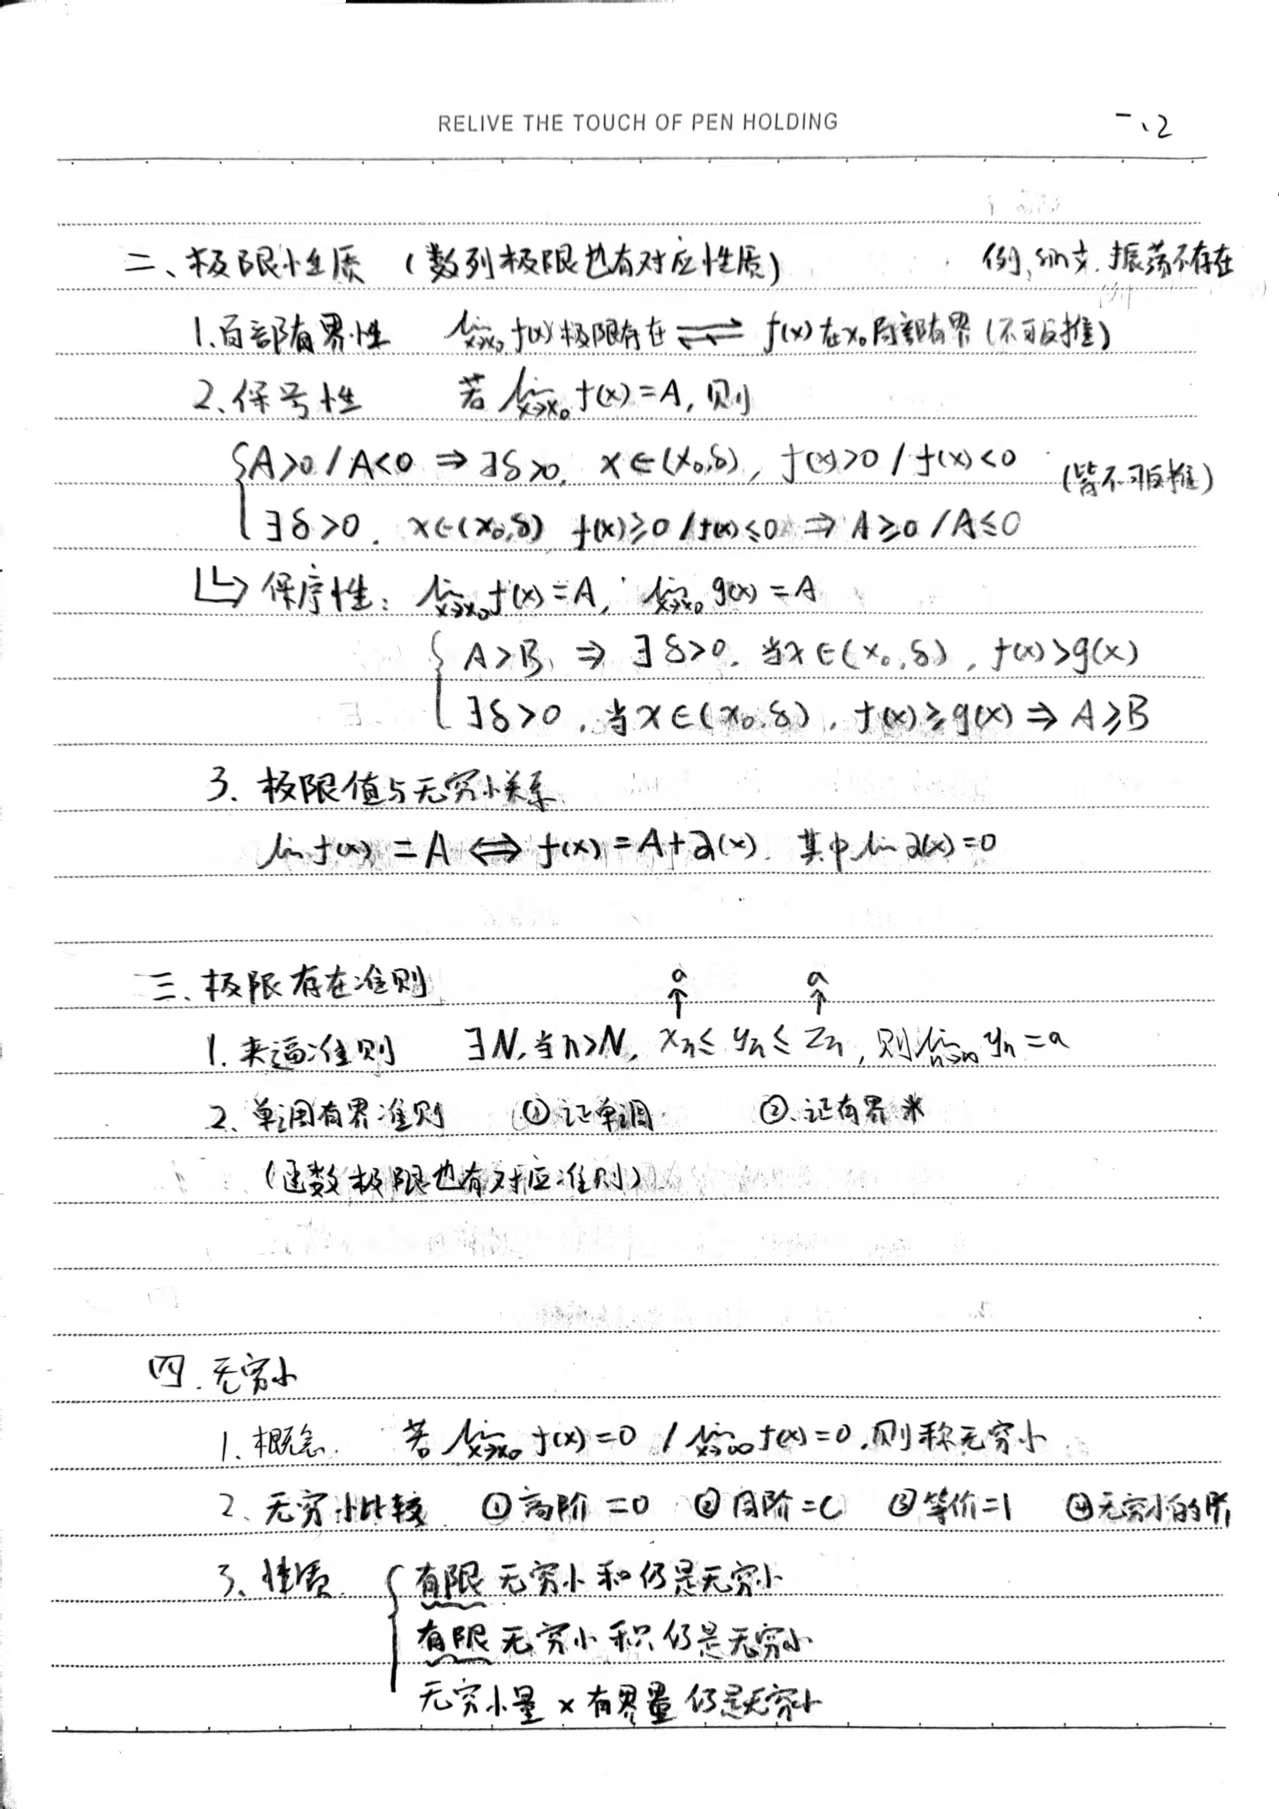 RELIVE THE TOUCH OF PEN HOLDING
一、2
二、极限性质 (数列极限也有对应性质) 例、sin 1/x. 振荡不存在
1.局部有界性 lim x→x₀ f(x)极限存在 ⇌ f(x)在x₀局部有界(不可反推)
2、保号性 若 lim x→x₀ f(x)=A, 则
{A>0 / A<0 ⇒ ∃δ>0, x∈(x₀,δ), f(x)>0 / f(x)<0 (皆不可反推)
∃δ>0. x∈(x₀,δ) f(x)≥0 / f(x)≤0 ⇒ A≥0 / A≤0
↳ 保序性: lim x→x₀ f(x)=A, lim x→x₀ g(x)=A
{ A>B ⇒ ∃δ>0. 当x∈(x₀,δ), f(x)>g(x)
∃δ>0, 当x∈(x₀,δ), f(x)≥g(x) ⇒ A≥B
3. 极限值与无穷小关系
lim f(x) = A ⇔ f(x)=A+α(x). 其中 lim α(x)=0
三、极限存在准则 a a
↑ ↑
1.夹逼准则 ∃N,当n>N, xₙ≤ yₙ≤ zₙ, 则 lim n→∞ yₙ=a
2、单调有界准则 ①证单调 ②.证有界 *
(函数极限也有对应准则)
四.无穷小
1.概念. 若 lim x→x₀ f(x)=0 / lim x→∞ f(x)=0,则称无穷小
2、无穷小比较 ①高阶=0 ②同阶=C ③等价=1 ④无穷小的阶
3、性质 { 有限无穷小和仍是无穷小
有限无穷小积仍是无穷小
无穷小量×有界量仍是无穷小